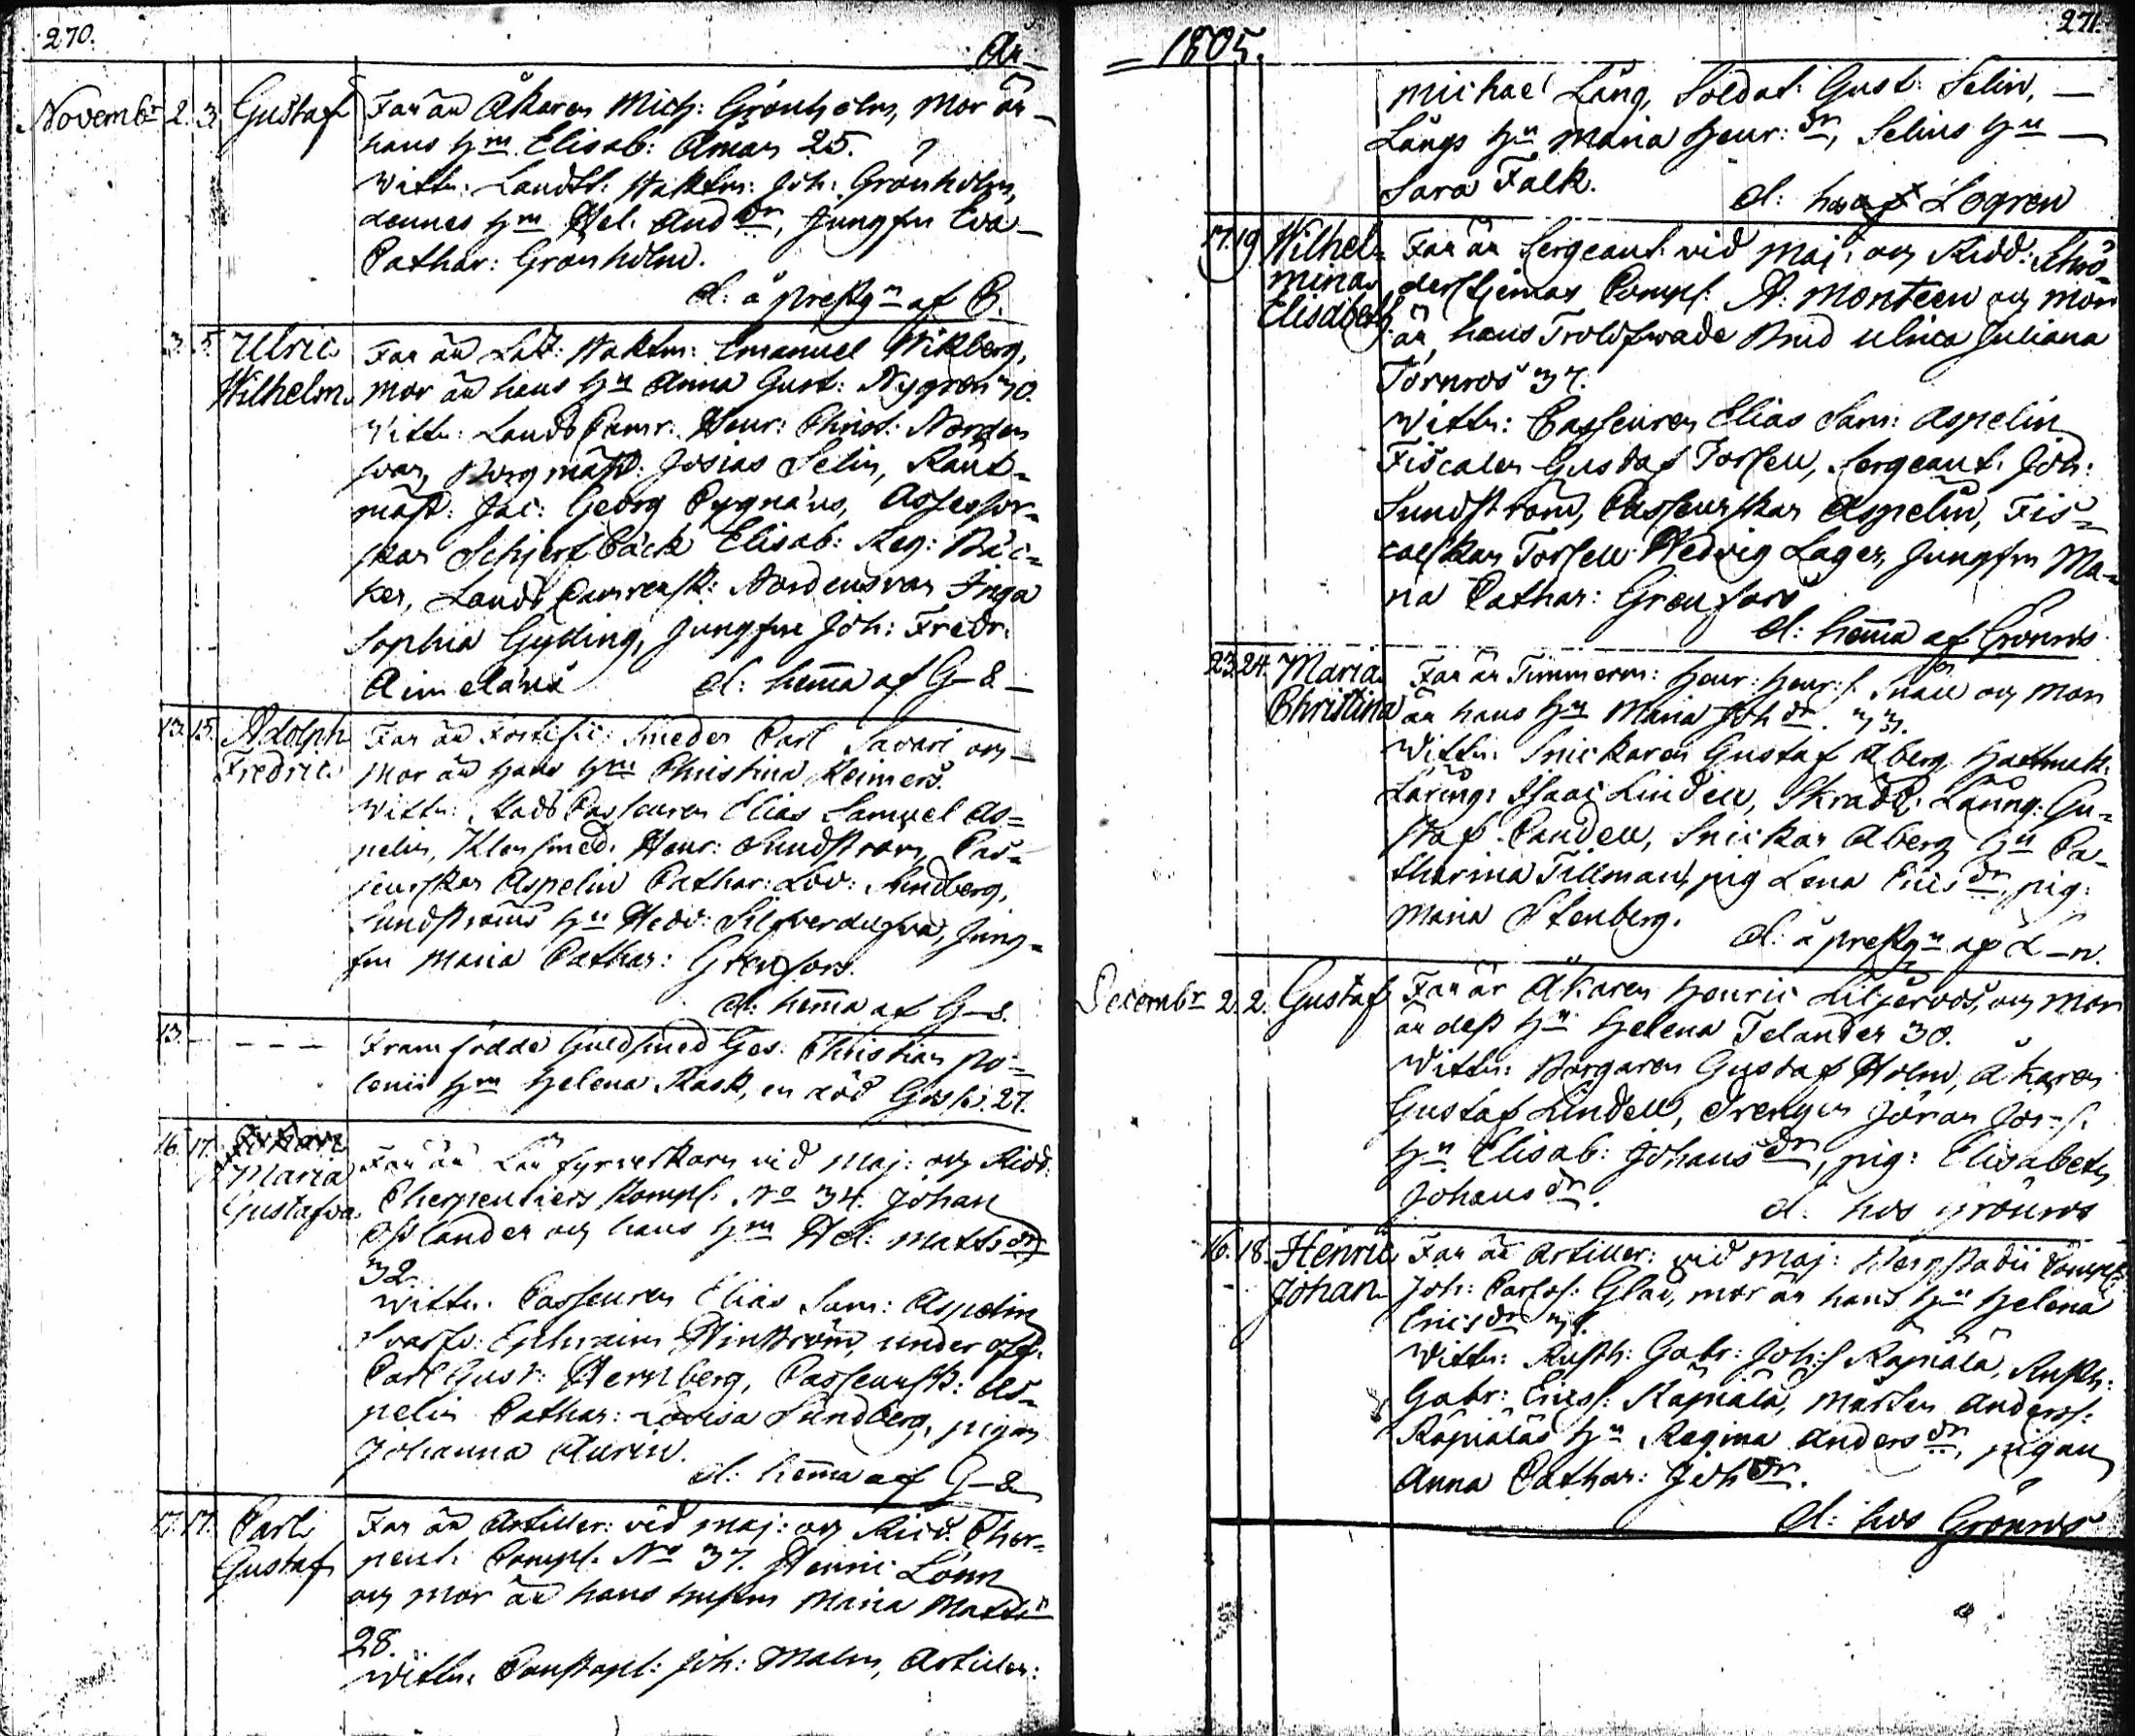 270.
År
Novembr 2. 3. Gustaf Far är Åkaren Mich: Grönholm, Mor är
hans hu Elisab: Åman 25.
Wittn: Landst: Waktm: Joh: Grönholm,
dennes hu Hel: And dr, Jungfru Eva
Cathar: Grönholm.
d: å prestgn af C.
3. 5. Ulric Wilhelm. Far är Laz: Waktm: Emanuel Wikberg,
Mor är hans hu Anna Gust: Nygren 30.
Wittn: Lands Camr: Henr: Christ: Norden
svan, Borgmäst: Josias Selin, Ränt-
mäst: Jac: Georg Cygnæus, Assessor-
skan Schjerfbäck Elisab: Reg: Bäc-
ker, Lands Camrersk: Nordensvan Inga
Sophia Gylling, Jungfru Joh: Fredr:
Aimelæus
d: hema af G-s
13. 15. Adolph Fredric Far är Fortific: Smeden Carl Savari och
Mor är hans hu Christina Reimers.
Wittn: Stads Casseuren Elias Samuel As=
pelin, Klensmed: Henr: Sundström, Cas-
seurskan Aspelin Cathar: Lov: Sundberg,
Sundströms hu Hedv: Silfverdufva, Jung-
fru Maria Cathar: Grenfors.
d: hema af G-s.
13. - - - Framfödde Guldsmed Ges: Christian Po=
lonii hu Helena Rask, en död Gosse. 27.
16. 17. Maria Gustafva. Far är Lär fyrverkaren vid Maj: och Ridd:
Cherpentiers Komp: No 34. Johan
Osslander och hans hu Hel: Matts dr
32.
Wittn: Casseuren Elias Sam: Aspelin
Svarfv: Ephraim Winström, underoff:
Carl Gust: Hernberg, Casseursk: As-
pelin Cathar: Lovisa Sundberg, pigan
Johanna Aurin.
d: hema af G-s
17. 17. Carl Gustaf Far är Artiller: vid Maj: och Ridd: Cher-
pent: Comp: No 37. Henric Lönn
och Mor är hans hustru Maria Matts dr
28.
Wittn: Constapel: Joh: Malm, Artiller:
271.
= 1805.
Michael Lång, Soldat: Gust: Selin,
Långs hu Maria Henr: dr, Selins hu
Sara Falk.
d: hos Logren
17. 19. Wilhel- mina Elisabeth Far är Sergeant vid Maj: och Ridd: Schrö-
derstjernas Comp: A: Monteen och mor
är, hans Trolofwade Brud Ulrica Juliana
Törnros 37.
Wittn: Casseuren Elias Sam: Aspelin
Fiscalen Gustaf Forsell, Sergeant: Joh:
Sundström, Casseurskan Aspelin, Fis-
calskan Forsell Hedvig Lager, Jungfru Ma-
ria Cathar: Grenfors
d: hema af Grönros
23. 24. Maria Christina Far är Timmerm: Henr: Henr: s. Snäll och Mor
är hans hu Maria Joh dr. 33.
Wittn: Snickaren Gustaf Åberg, Hattmak:
Läring: Isaac Lindell, Skradd: Läring: Gu-
staf Candell, Snickar Åberg hu Ca-
tharina Tillman, pig Lena Erics dr, pig:
Maria Stenberg.
d: å prestgn af L-n.
Decembr 2. 2. Gustaf Far är Åkaren Henric Liljeroos, och Mor
är dess hu Helena Telander 30.
Wittn: Borgaren Gustaf Holm, Åkaren
Gustaf Lindell, Drengen Jöran Jör-s.
hu Elisab: Johans dr, pig: Elisabeth
Johans dr.
d: hos Grönros
16. 18. Henric Johan Far är Artiller: vid Maj: Bergstadii Comp:
Joh: Carlss: Glad, mor är hans hu Helena
Erics dr
Wittn: Rusth: Gabr: Joh:s Rapiala, Rusth:
Gabr: Ericss: Rapiala, Mårten Anderss:
Rapialas hu Regina Anders dr, pigan
Anna Cathar: Joh dr.
d: hos Grönros